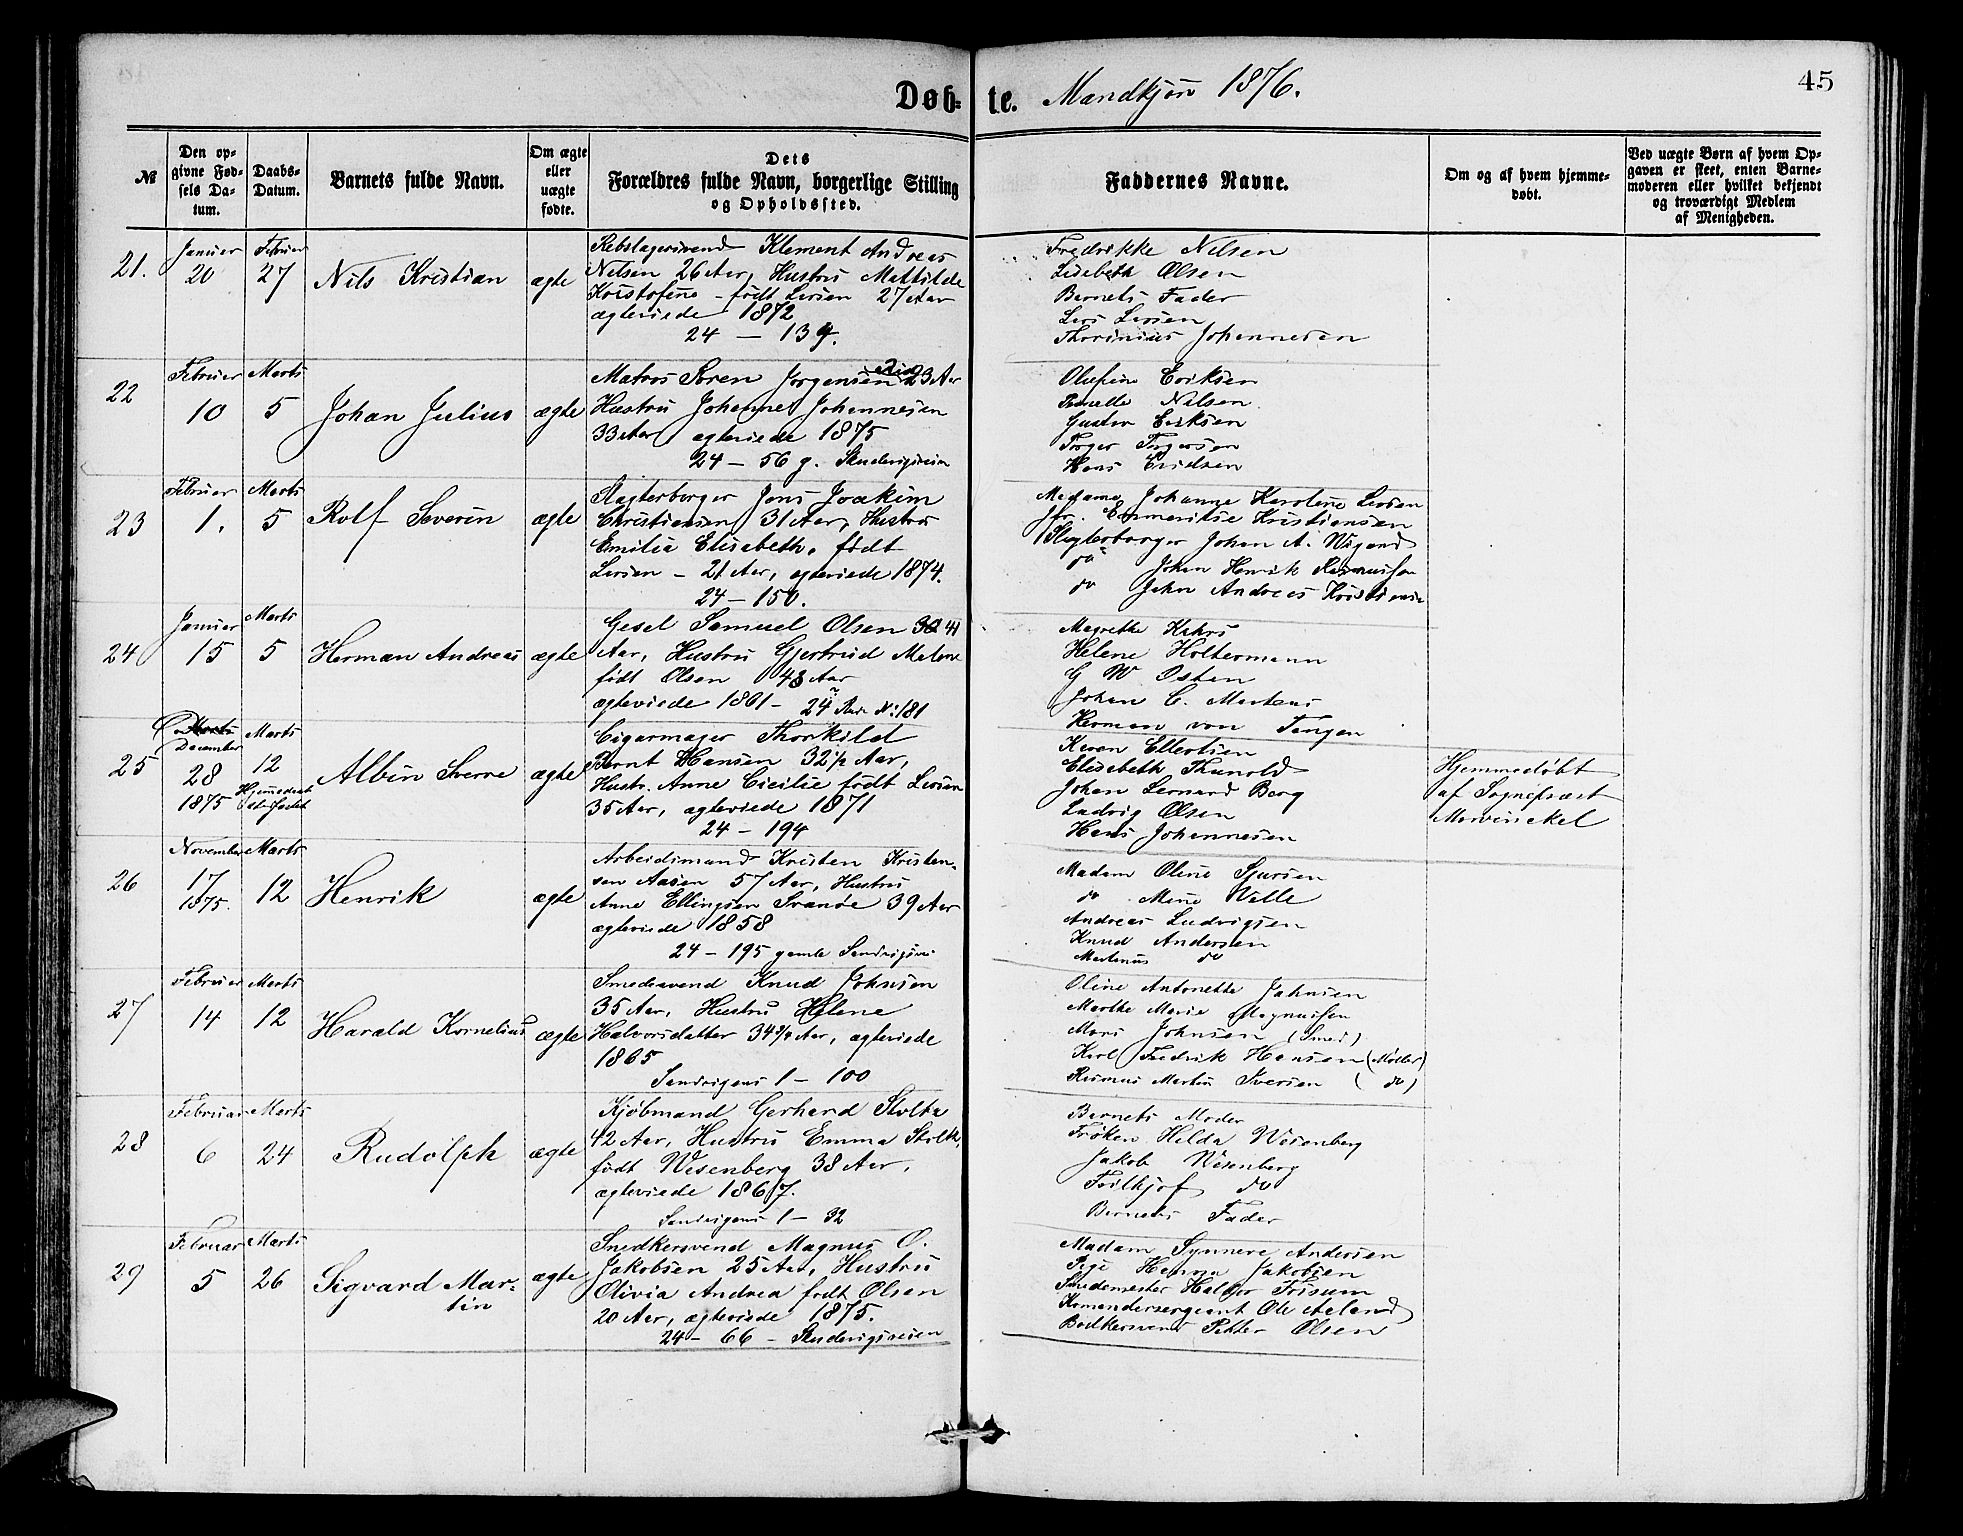 Døb-te. Mandkjøn 1876.
45
№
Den op-
givne Fød-
sels Da-
tum.
Daabs-
Datum.
Barnets fulde Navn.
Om ægte
eller
uægte
fødte.
Dets
Forældres fulde Navn, borgerlige Stilling
og Opholdssted.
Faddernes Navne.
Om og af hvem hjemme-
døbt.
Ved uægte Børn af hvem Op-
gaven er skeet, enten Barne-
moderen eller hvilket bekjendt
og troværdigt Medlem
af Menigheden.
21.
Januar
20
Februar
27
Nils Kristian
ægte
Rebslagersvend Klement Andreas
Nilsen 26 Aar, Hustru Mathilde
Kristofine født Larsen 27 Aar
ægteviede 1872
24 — 139.
Fredrikke Nilsen
Lisebeth Olsen
Barnets Fader
Lars Larsen
Thorinius Johannesen
22
Februar
10
Marts
5
Johan Julius
ægte
Matros Søren Jørgensen 23 Aar
Hustru Johanne Johannesen
33 Aar ægteviede 1875
24 — 56 g. Sandvigsveien
Olufine Eriksen
Nilsen
Gustav Eriksen
Torger Torgersen
Hans
23
Februar
1.
Marts
5
Rolf Severin
ægte
Slagterborger Jens Joakim
Christiansen 31 Aar, Hustru
Emilie Elisabeth, født
Larsen — 21 Aar, ægteviede 1874.
24 — 150.
Madame Johanne Karoline Larsen
Jfr. Emmeritse Kristiansen
Slagterborger Johan A. Wigand
do Johan Henrik Rasmussen
do John Andreas Kristiansen
24
Januar
15
Marts
5
Herman Andreas
ægte
Gesel Samuel Olsen 41
Aar, Hustru Gjertrud Malene
født Olsen 48 Aar
ægteviede 1861 — 24 Rode No 181
Magrethe Kahrs
Helene Holtermann
G W Osten
Johan C. Martens
Herman von Tangen
25
December
28
1875
Marts
12
Hjemmedaab
stadfæstet
Albin Sverre
ægte
Cigarmager Thorkild
Bernt Hansen 32 1/2 Aar,
Hustr. Anne Cicilie født Larsen
35 Aar, ægteviede 1871
24 — 194
Karen Ellertsen
Elisabeth Thunold
Johan Lernard Berg
Ludvig Olsen
Hans Johannesen
Hjemmedøbt
af Sognepræst
Mowinckel
26
November
17
1875.
Marts
12
Henrik
ægte
Arbeidsmand Kristen Kristen-
sen Aasen 57 Aar, Hustru
Anne Ellingsen Svanøe 39 Aar
ægteviede 1858
24 — 195 gamle Sandvigsvei
Madam Oline Sjursen
do Mine Wille
Andreas Ludvigsen
Knud Andersen
Martinus do
27
Februar
14
Marts
12
Harald Kornelius
ægte
Smedsvend Knud Johnsen
35 Aar, Hustru Helene
Halvorsdatter 34 3/4 Aar, ægteviede
1865
Sandvigens 1 — 100
Oline Antonette Jahnsen
Marthe Marie Magnussen
Mons Johnsen (Smed)
Karl Fredrik Hansen (Møller)
Rasmus Martin Iversen ( do )
28
Februar
6
Marts
24
Rudolph
ægte
Kjøbmand Gerhard Stoltz
42 Aar, Hustru Emma Stoltz,
født Wesenberg 38 Aar,
ægteviede 1867.
Sandvigens 1 — 32
Barnets Moder
Frøken Hilda Wesenberg
Jakob Wesenberg
Fritkjof do
Barnets Fader
29
Februar
5
Marts
26
Sigvard Mar-
tin
ægte
Snedkersvend Magnus O.
Jakobsen 25 Aar, Hustru
Olivia Andrea født Olsen
20 Aar, ægteviede 1875.
24 — 66 — Sandvigsveien
Madam Synneve Andersen
Pige Hanna Jakobsen
Smedemester Halvor Frisum
Komandersergeant Ole Aaland
Bødkersvend Petter Olsen